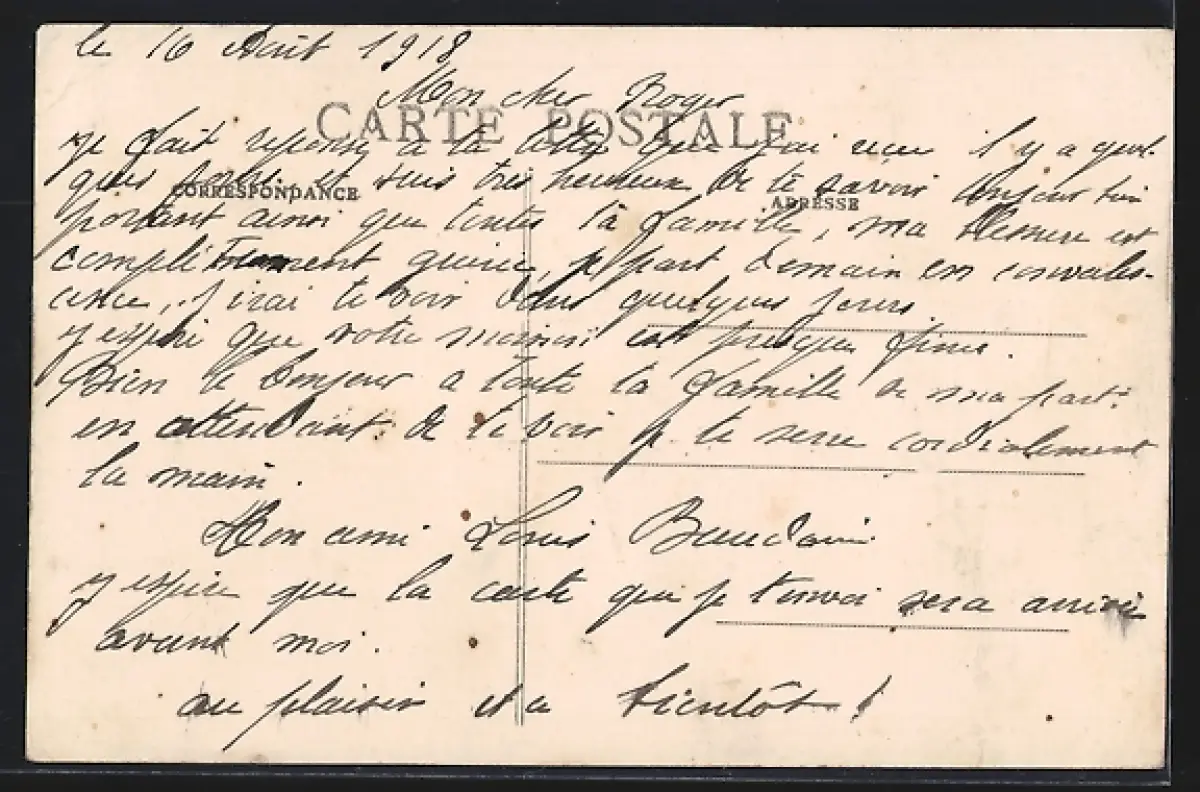 le 16 Août 1918
Mon cher Roger
CARTE POSTALE
je fait reponse a ta lettre que j'ai reçu il y a quel-
ques jours et suis très heureux de te savoir toujours bien
CORRESPONDANCE
ADRESSE
portant ainsi que toute ta famille, ma blessure est
complètement guérie, je part demain en convales-
cence, j'irai te voir dans quelques jours.
j'espère que votre moisson est presque finie.
Bien le bonjour a toute ta famille de ma part.
en attendant de te voir je te serre cordialement
la main.
Mon ami Louis
j'espère que la carte que je t'envoi sera arrivée
avant moi.
au plaisir et a bientôt !